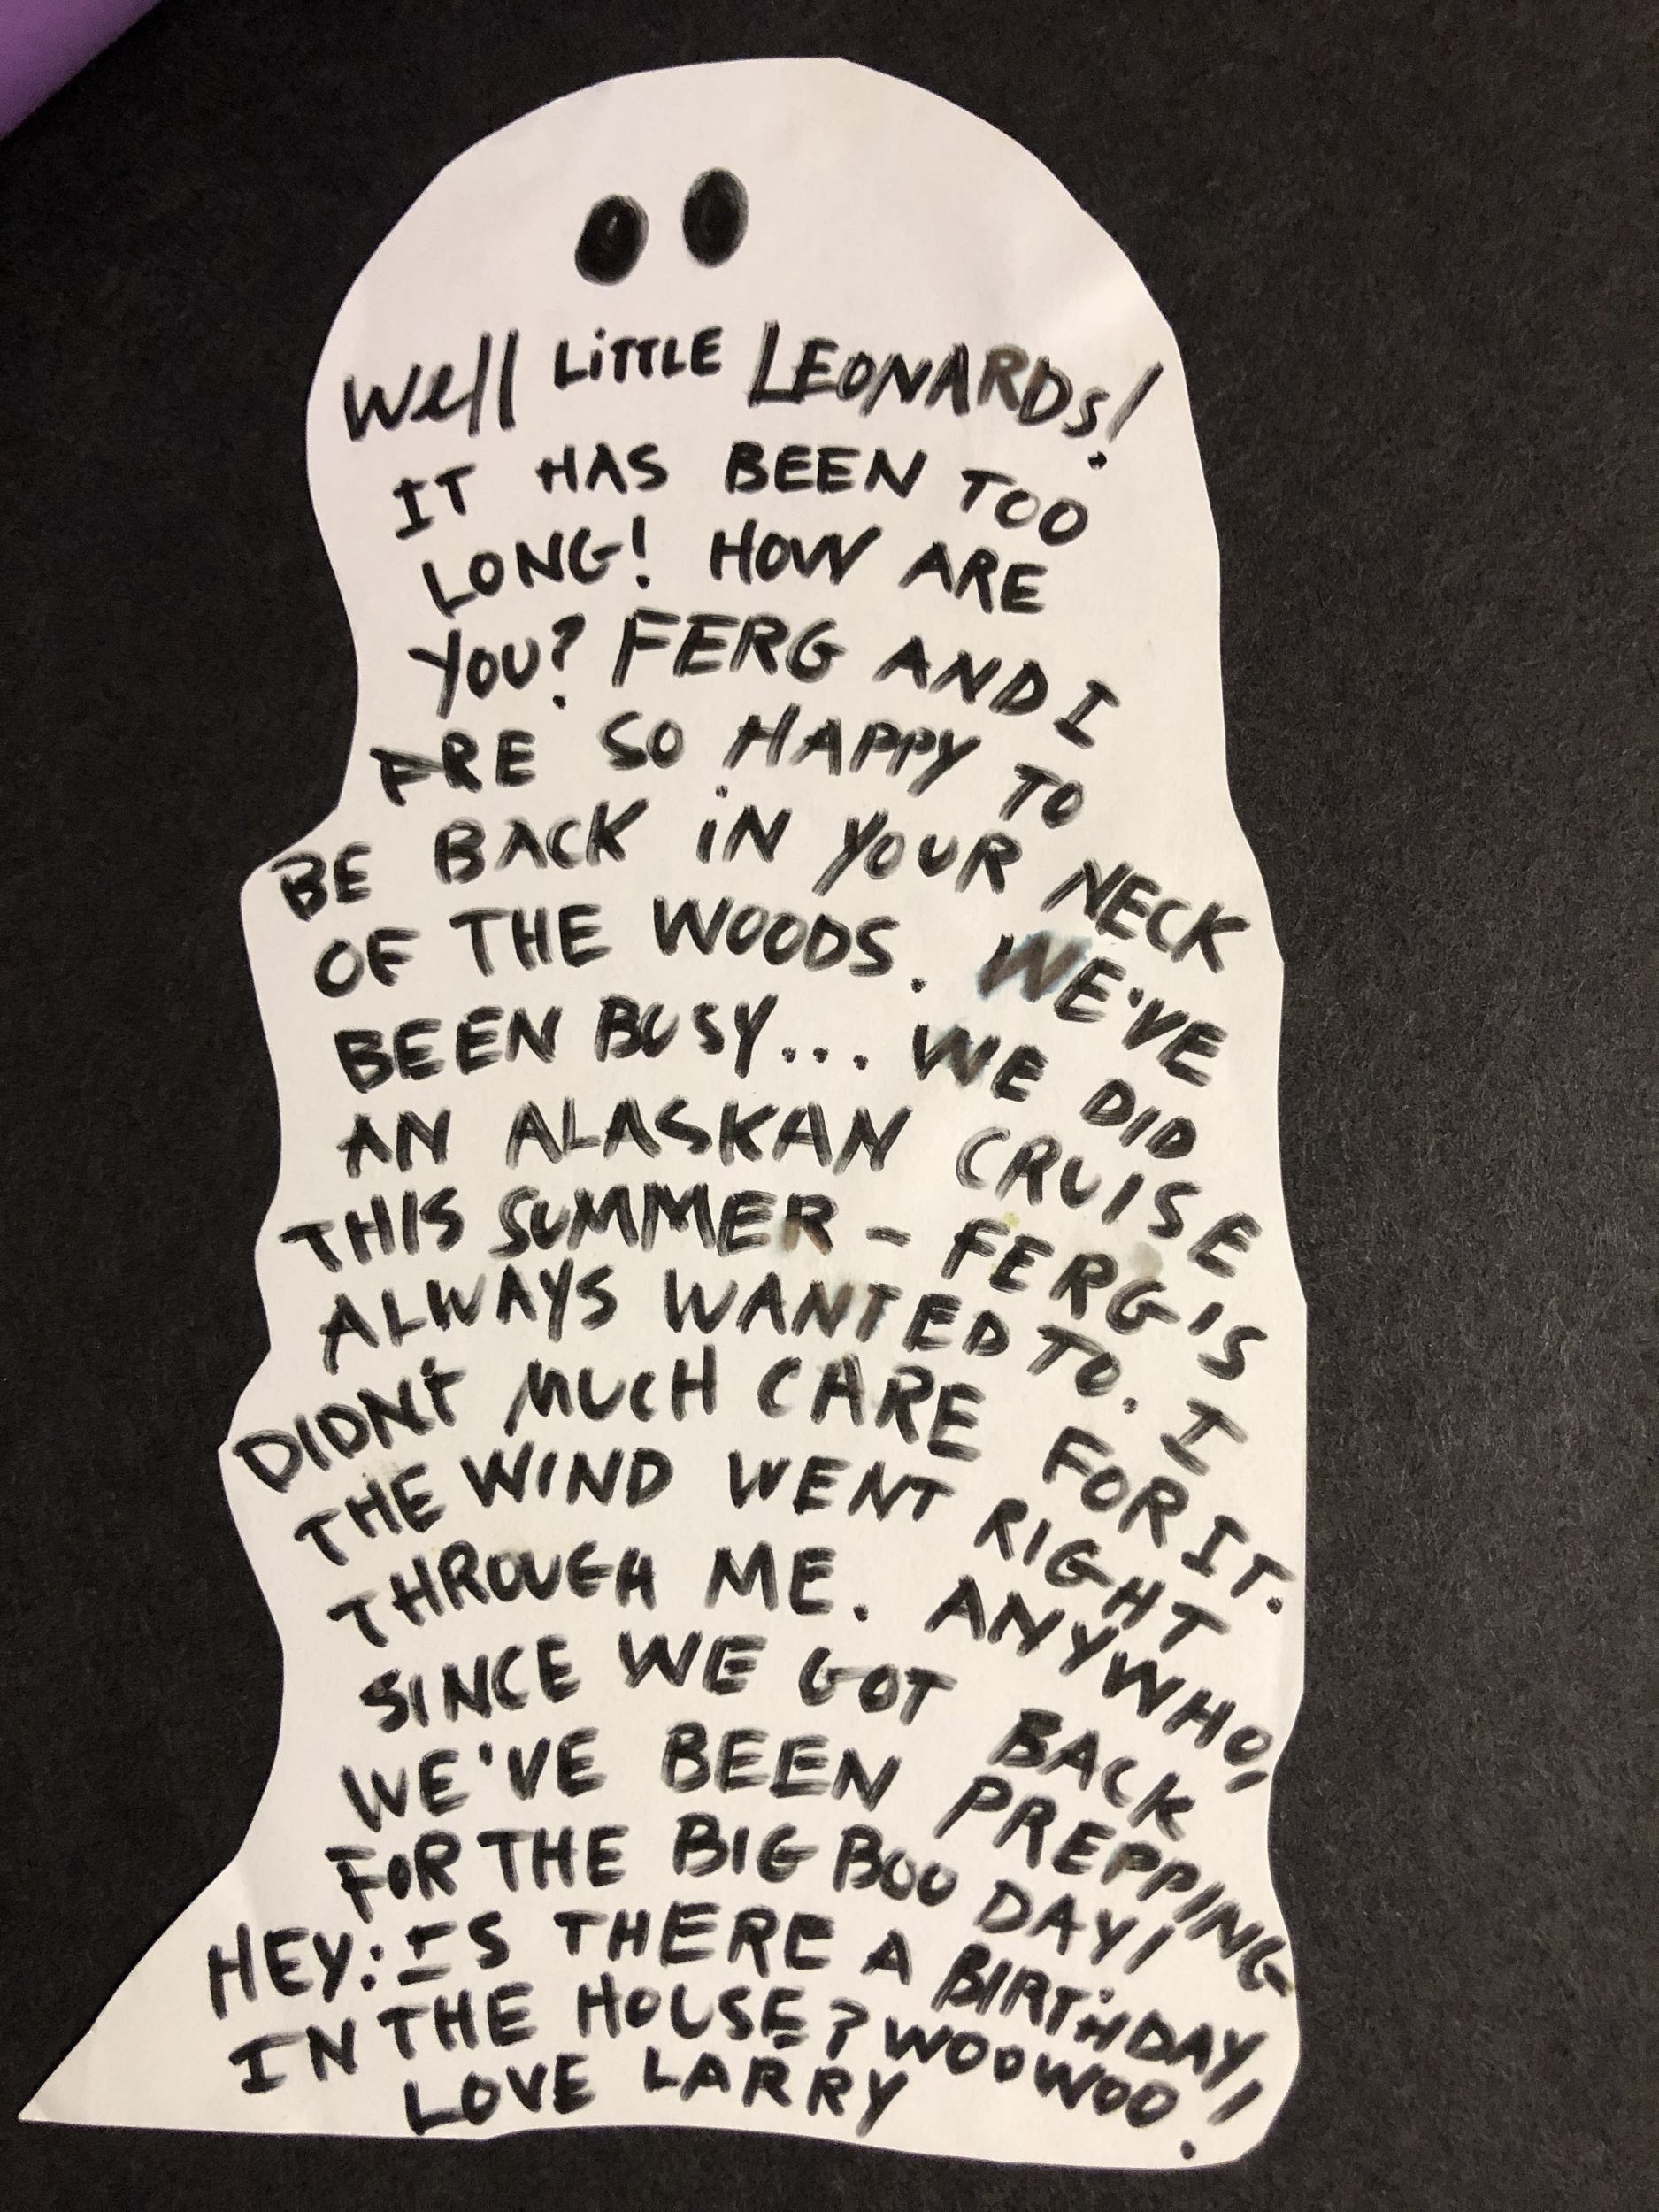 Well LiTTLE LEONARDs!
IT HAS BEEN TOO
LONG! HOW ARE
YOU? FERG AND I
ARE SO HAPPY TO
BE BACK iN YOUR NECK
OF THE WOODS. WE'VE
BEEN BUSY... WE DID
AN ALASKAN CRUISE
THIS SUMMER - FERG'S
ALWAYS WANTED TO. I
DIDNt MUCH CARE FOR IT.
THE WIND WENT RIGHT
THROUGH ME. ANYWHO,
SINCE WE GOT BACK
WE'VE BEEN PREPPING
FOR THE BIG BOO DAY!
HEY: IS THERE A BIRTHDAY,
IN THE HOUSE? WOOWOO!
LOVE LARRY